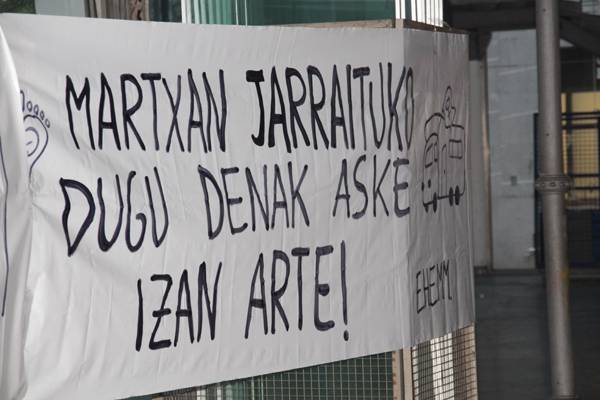 MARTXAN JARRAITUKO
DUGU DENAK ASKE
IZAN ARTE!
EHEMM.